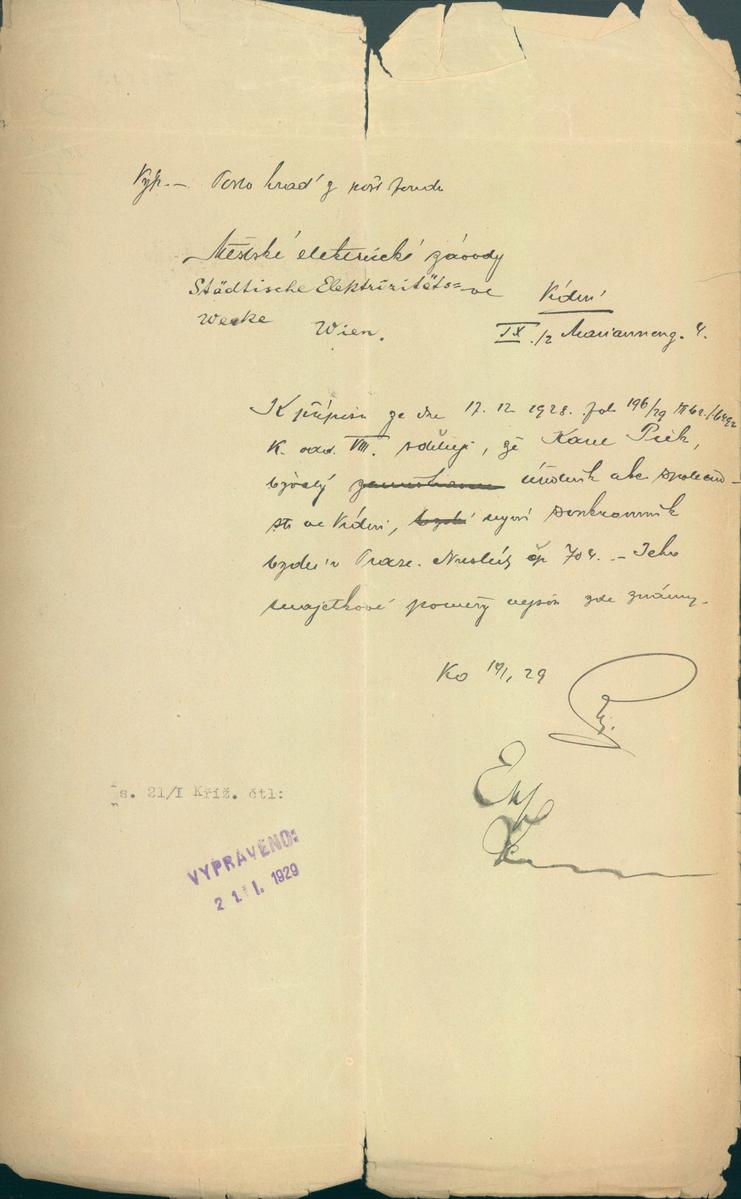 Vyp. — Porto hraď z pošt. fondu
Městské elektrické závody
Städtische Elektrizitäts= ve Vídni
Werke Wien. IX./2 Marianneng. 4.
K přípisu ze dne 17. 12. 1928.
K. odd. VIII. sděluji, že Karel
bývalý úředník akc. společno-
sti ve Vídni, bydlí nyní soukromník
bydlí v Praze. Nuslích čp. 704. — Jeho
majetkové poměry nejsou zde známy.
Ko 19/I. 29
Exp
s. 21/I Kříž. čtl:
VYPRAVENO:
2 1. I. 1929